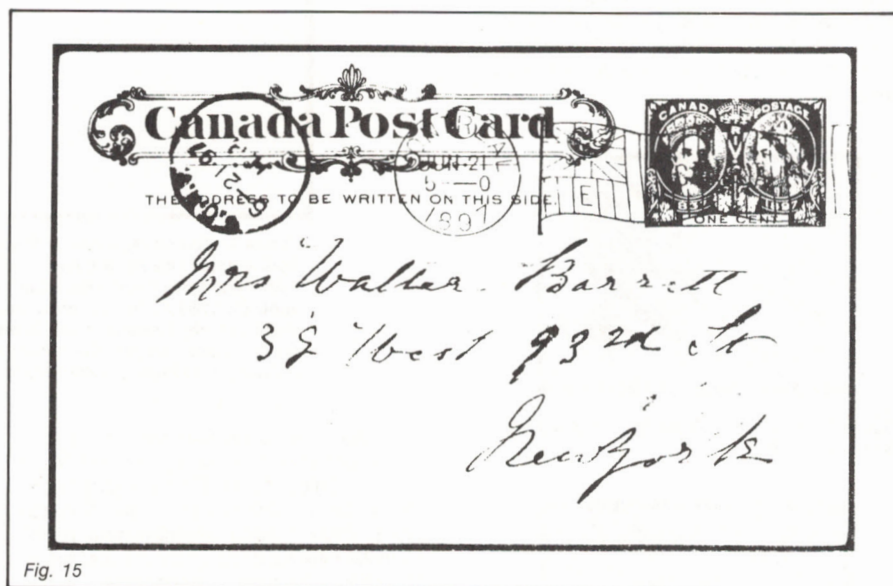 Canada Post Card
THE ADDRESS TO BE WRITTEN ON THIS SIDE.
JUN 21
5—0
1897
E
CANADA POSTAGE
ONE CENT
Mrs Walter Barrett
West 93rd St
New York
Fig. 15